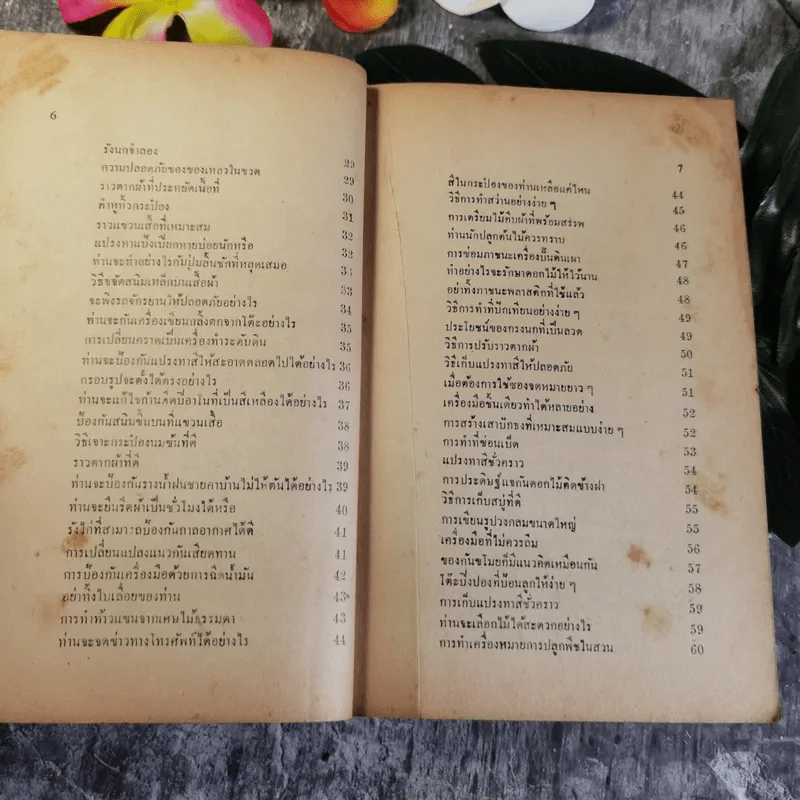 6
รังนกจำลอง
ความปลอดภัยของของเหลวในขวด 29
ราวตากผ้าที่ประหยัดเนื้อที่ 29
ตำหูหิ้วกระป๋อง 30
ราวแขวนเสื้อที่เหมาะสม 31
แปรงทาแป้งเปียกหายบ่อยนักหรือ 32
ท่านจะทำอย่างไรกับปุ่มลิ้นชักที่หลุดเสมอ 32
วิธีขจัดสนิมเหล็กบนเสื้อผ้า 34
จะพิงรถจักรยานให้ปลอดภัยอย่างไร 33
ท่านจะกันเครื่องเขียนกลิ้งตกจากโต๊ะอย่างไร 34
การเปลี่ยนคราดเป็นเครื่องทำระดับดิน 35
ท่านจะป้องกันแปรงทาสีให้สะอาดตลอดไปได้อย่างไร 35
กรอบรูปจะตั้งได้ตรงอย่างไร 36
ท่านจะแก้ไขก้านดีดเปียโนที่เป็นสีเหลืองได้อย่างไร 36
ป้องกันสนิมขึ้นบนที่แขวนเสื้อ 37
วิธีเจาะกระป๋องนมข้นที่ดี 38
ราวตากผ้าที่ดี 38
ท่านจะป้องกันรางน้ำฝนชายคาบ้านไม่ให้ตันได้อย่างไร 39
ท่านจะยืนรีดผ้าเป็นชั่วโมงได้หรือ 39
รังไก่ที่สามารถป้องกันถาลอากาศได้ดี 40
การเปลี่ยนแปลงแนวกันเสียดทาน 41
การป้องกันเครื่องมือด้วยการฉีดน้ำมัน 41
อย่าทิ้งใบเลื่อยของท่าน 42
การทำท้าวแขนจากเศษไม้ธรรมดา 43
ท่านจะจดข่าวทางโทรศัพท์ได้อย่างไร 43
44
7
สีในกระป๋องของท่านเหลือแค่ไหน 44
วิธีการทำสว่านอย่างง่าย ๆ 45
การเตรียมไม้คีบผ้าที่พร้อมสรรพ 46
ท่านนักปลูกต้นไม้ควรทราบ 46
การซ่อมภาชนะเครื่องปั้นดินเผา 47
ทำอย่างไรจะรักษาดอกไม้ให้ไว้นาน 48
อย่าทิ้งภาชนะพลาสติกที่ใช้แล้ว 48
วิธีการทำที่ปักเทียนอย่างง่าย ๆ 49
ประโยชน์ของกรงนกที่เป็นลวด 49
วิธีการปรับราวตากผ้า 50
วิธีเก็บแปรงทาสีให้ปลอดภัย 51
เมื่อต้องการใช้ซองจดหมายยาว ๆ 51
เครื่องมือชิ้นเดียวทำได้หลายอย่าง 52
การสร้างเสาปักธงที่เหมาะสมแบบง่าย ๆ 52
การทำที่ซ่อนเบ็ด 53
แปรงทาสีชั่วคราว 54
การประดิษฐ์แจกันดอกไม้ติดข้างฝา 54
วิธีการเก็บสบู่ที่ดี 55
การเขียนรูปวงกลมขนาดใหญ่ 55
เครื่องมือที่ไม่ควรลืม 56
ของกันขโมยก็มีแนวคิดเหมือนกัน 57
โต๊ะปิงปองที่ป้อนลูกให้ง่าย ๆ 58
การเก็บแปรงทาสีชั่วคราว 59
ท่านจะเลือกไม้ได้สะดวกอย่างไร 59
การทำเครื่องหมายการปลูกพืชในสวน 60